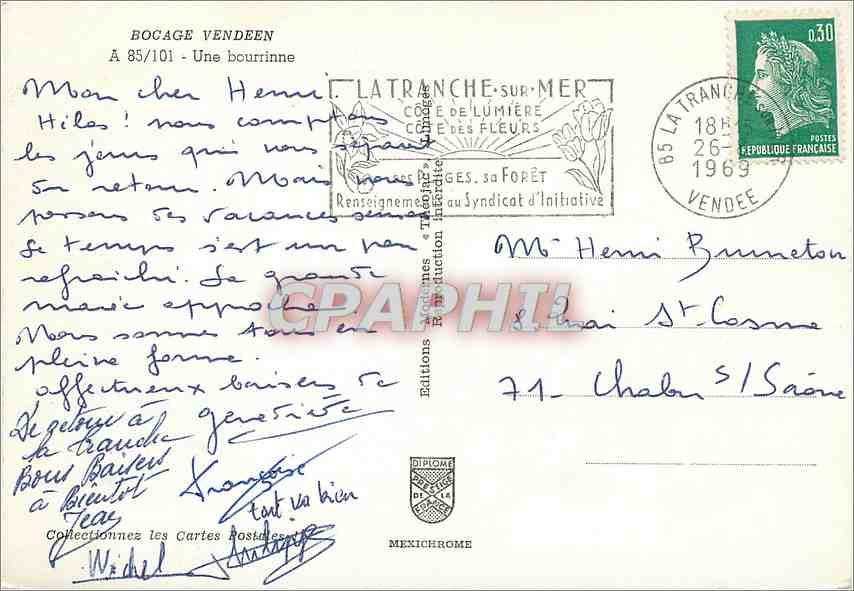 BOCAGE VENDEEN
A 85/101 - Une bourrinne
Mon cher Henri.
Hélas! nous comptons
les jours qui nous séparent
du retour. Mais nous
passons des vacances
Le temps s'est un peu
rafraichi. La grande
marée approche.
Nous sommes tous en
pleine forme.
affectueux baisers de
geneviève
De retour à
la tranche
Bons Baisers
à Bientôt
Jean
Françoise
tout va bien
Michel
Collectionnez les Cartes Postales
LA TRANCHE-SUR-MER
CÔTE DE LUMIÈRE
CÔTE DES FLEURS
ses PLAGES, sa FORÊT
Renseignements au Syndicat d'Initiative
85 LA TRANCHE
18H
26-
1969
VENDEE
0,30
POSTES
REPUBLIQUE FRANÇAISE
Editions Modernes « Théojac », Limoges
Reproduction interdite
CPAPHIL
Mr Henri Bruneton
8 Quai St Cosme
71 - Chalon s/Saône
DIPLOME
PRESTIGE
DE LA
FRANCE
MEXICHROME